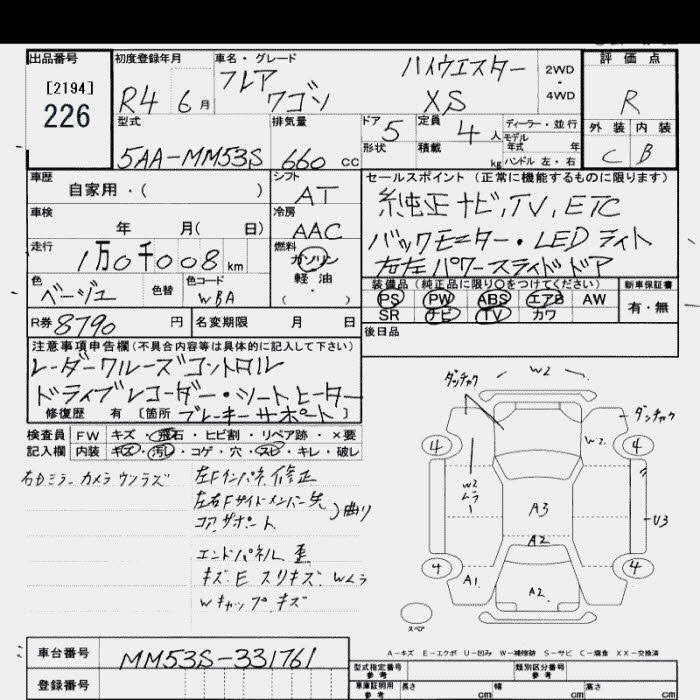 出品番号
[2194]
226
初度登録年月
R4 6月
車名・グレード
フレア ハイウエスター
ワゴン XS
2WD
・
4WD
評価点
R
外装 内装
C B
型式
5AA-MM53S
排気量
660 cc
ドア 5
形状
定員 4人
積載 kg
ディーラー・並行
モデル
年式 年
ハンドル 左・右
車歴
自家用・( )
シフト
AT
車検
年 月( 日)
冷房
AAC
走行
1万0千008 km
燃料
ガソリン
軽油
( ・ )
色
ベージュ
色替
色コード
WBA
R券 8790 円
名変期限 月 日
セールスポイント(正常に機能するものに限ります)
純正ナビ,TV,ETC
バックモニター・LEDライト
右左パワースライドドア
装備品(純正品に限り○をつけてください)
PS PW ABS エアB AW
SR ナビ TV カワ
新車保証書
有・無
後日品
注意事項申告欄(不具合内容等は具体的に記入して下さい)
レーダークルーズコントロル
ドライブレコーダー・シートヒーター
修復歴 有 [箇所 ブレーキサポート]
検査員 FW キズ・飛石・ヒビ割・リペア跡・×要
記入欄 内装 キズ・汚レ・コゲ・穴・スレ・キレ・破レ
右Dミラー カメラ ウンラズ
左Fインパネ修正
左右Fサイドメンバー先
コアサポート
曲り
エンドパネル 歪
キズ E スリキズ Wムラ
Wキャップ キズ
ダンチャク
W2
ダンチャク
W2
4
4
W2
ムラ
A3
U3
A2
4
4
A1
A2
スペア
A-キズ E-エクボ U-凹み W-補修跡 S-サビ C-腐食 XX-交換済
車台番号
MM53S-331761
登録番号
型式指定番号
参考
類別区分番号
参考
車庫証明用
参考
長さ cm
幅 cm
高さ cm